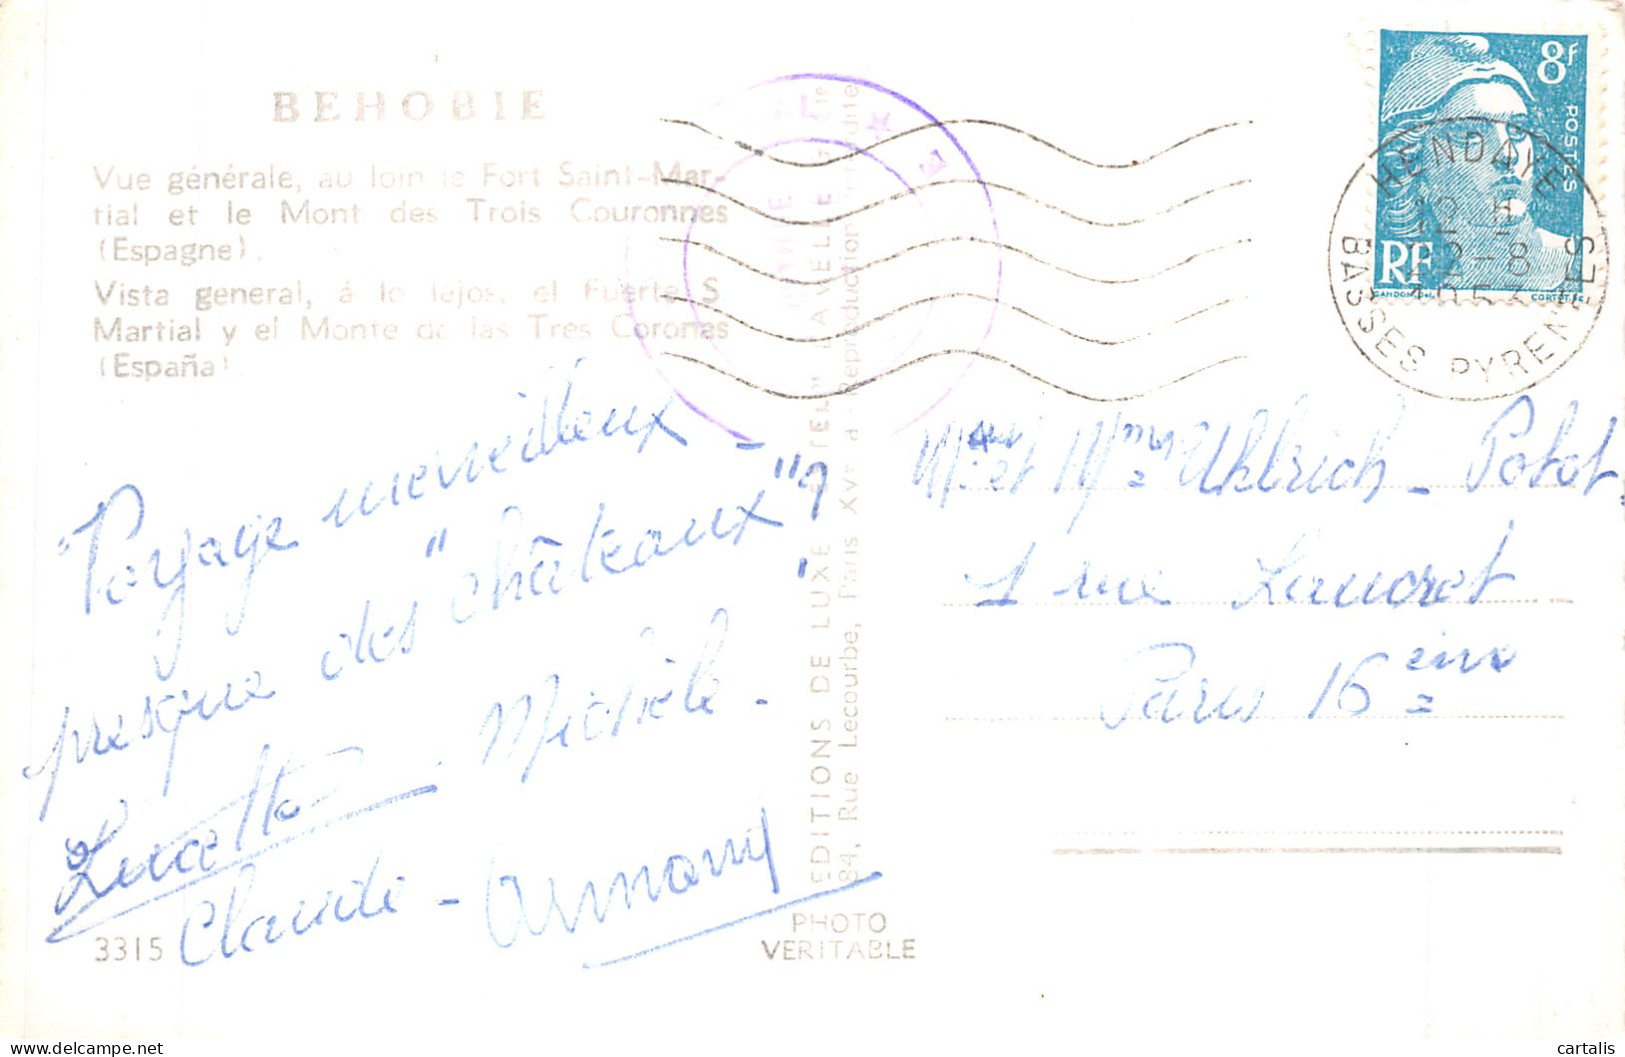 BEHOBIE
Vue générale, au loin le Fort Saint-Mar-
tial et le Mont des Trois Couronnes
(Espagne).
Vista general, á lo lejos, el Fuerte S
Martial y el Monte de las Tres Coronas
(España)
Voyage merveilleux -
presque des "châteaux"?
Lucette Michèle -
Claude - Armand
3315
EDITIONS DE LUXE "LAVIELLE"
84, Rue Lecourbe, Paris XVe - Reproduction interdite
PHOTO
VERITABLE
8f
POSTES
RF
GANDON
CORTOT SC
HENDAYE
12 H
12-8
1953
BASSES PYRENEES
et Mme Uhlrich - Potot
1 rue Lancret
Paris 16ème
cartalis
https://www.delcampe.net